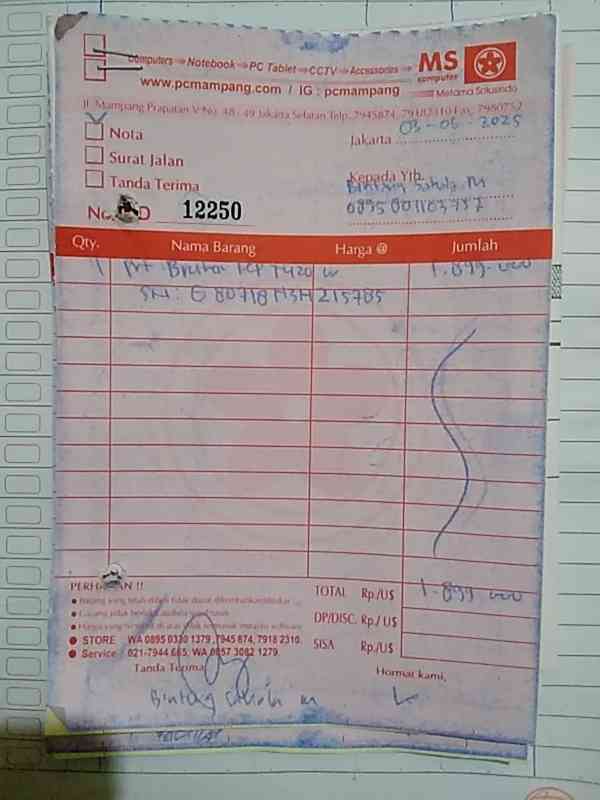 Computers ⇒ Notebook ⇒ PC Tablet ⇒ CCTV ⇒ Accessories ⇒ MS computer
www.pcmampang.com / IG : pcmampang Metama Solusindo
Jl. Mampang Prapatan V No. 48 - 49 Jakarta Selatan Telp. 7945874, 79182310 Fax. 7980752
Nota
Jakarta 03-06-2025
Surat Jalan
Kepada Yth.
Tanda Terima
Bintang
0895 001103787
No. D 12250
Qty. Nama Barang Harga @ Jumlah
1 Prt Brother T420 W 1.899.000
SN : E 80718 215785
PERHATIAN !!
TOTAL Rp./U$ 1.899.000
DP/DISC. Rp./ U$
STORE WA 0895 0330 1379, 7945 874, 7918 2310.
SISA Rp./U$
Service 021-7944 665, WA 0857 3082 1279.
Tanda Terima Hormat kami,
Bintang